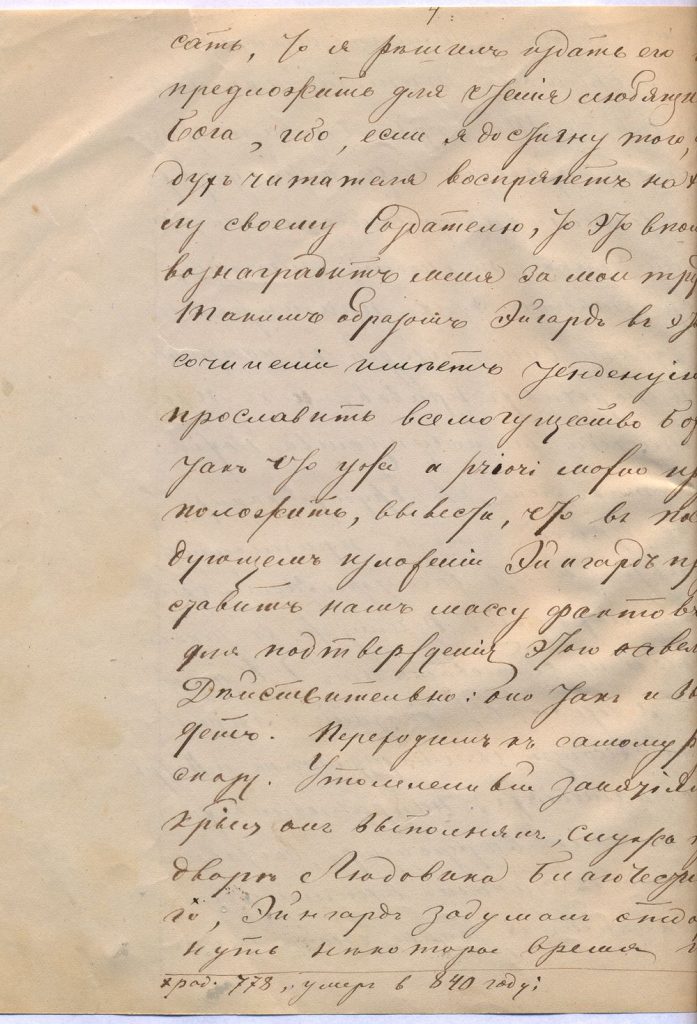 4.
сать, что я решил издать его
предложить для чтенія любящи
Бога, ибо, если я достигну того,
духъ читателя воспрянетъ на х
лу своему Создателю, то это впол
вознаградитъ меня за мои тру
Такимъ образомъ Эйгардъ въ э
сочиненіи имѣетъ тенденцію
прославить всемогущество Бо
такъ что уже a priori можно пр
положить, вывести, что въ по
дующемъ изложеніи Эйнгардъ пр
ставитъ намъ массу фактовъ
для подтвержденія этого
Дѣйствительно: оно такъ и вы
детъ. Переходимъ къ самому р
сказу. Утомленный занятіям
которыя онъ выполнялъ, служа
дворѣ Людовика Благочести
го, Эйнгардъ задумалъ отдо
нуть нѣкоторое время
х род. 778, умеръ в 840 году;